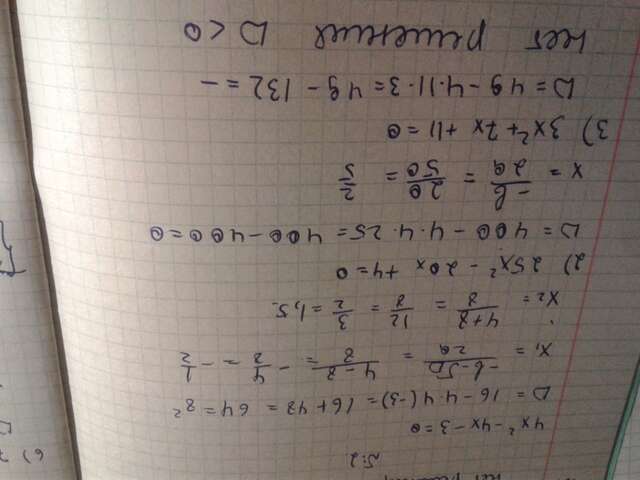 нет решения
№2
4x² - 4x - 3 = 0
D = 16 - 4·4(-3) = 16 + 48 = 64 = 8²
x₁ = (-b-√D)/2a = (4-8)/8 = -4/8 = -1/2
x₂ = (4+8)/8 = 12/8 = 3/2 = 1,5
2) 25x² - 20x + 4 = 0
D = 400 - 4·4·25 = 400 - 400 = 0
x = -b/2a = 20/50 = 2/5
3) 3x² + 7x + 11 = 0
D = 49 - 4·11·3 = 49 - 132 = -
нет решения D < 0
6) 7